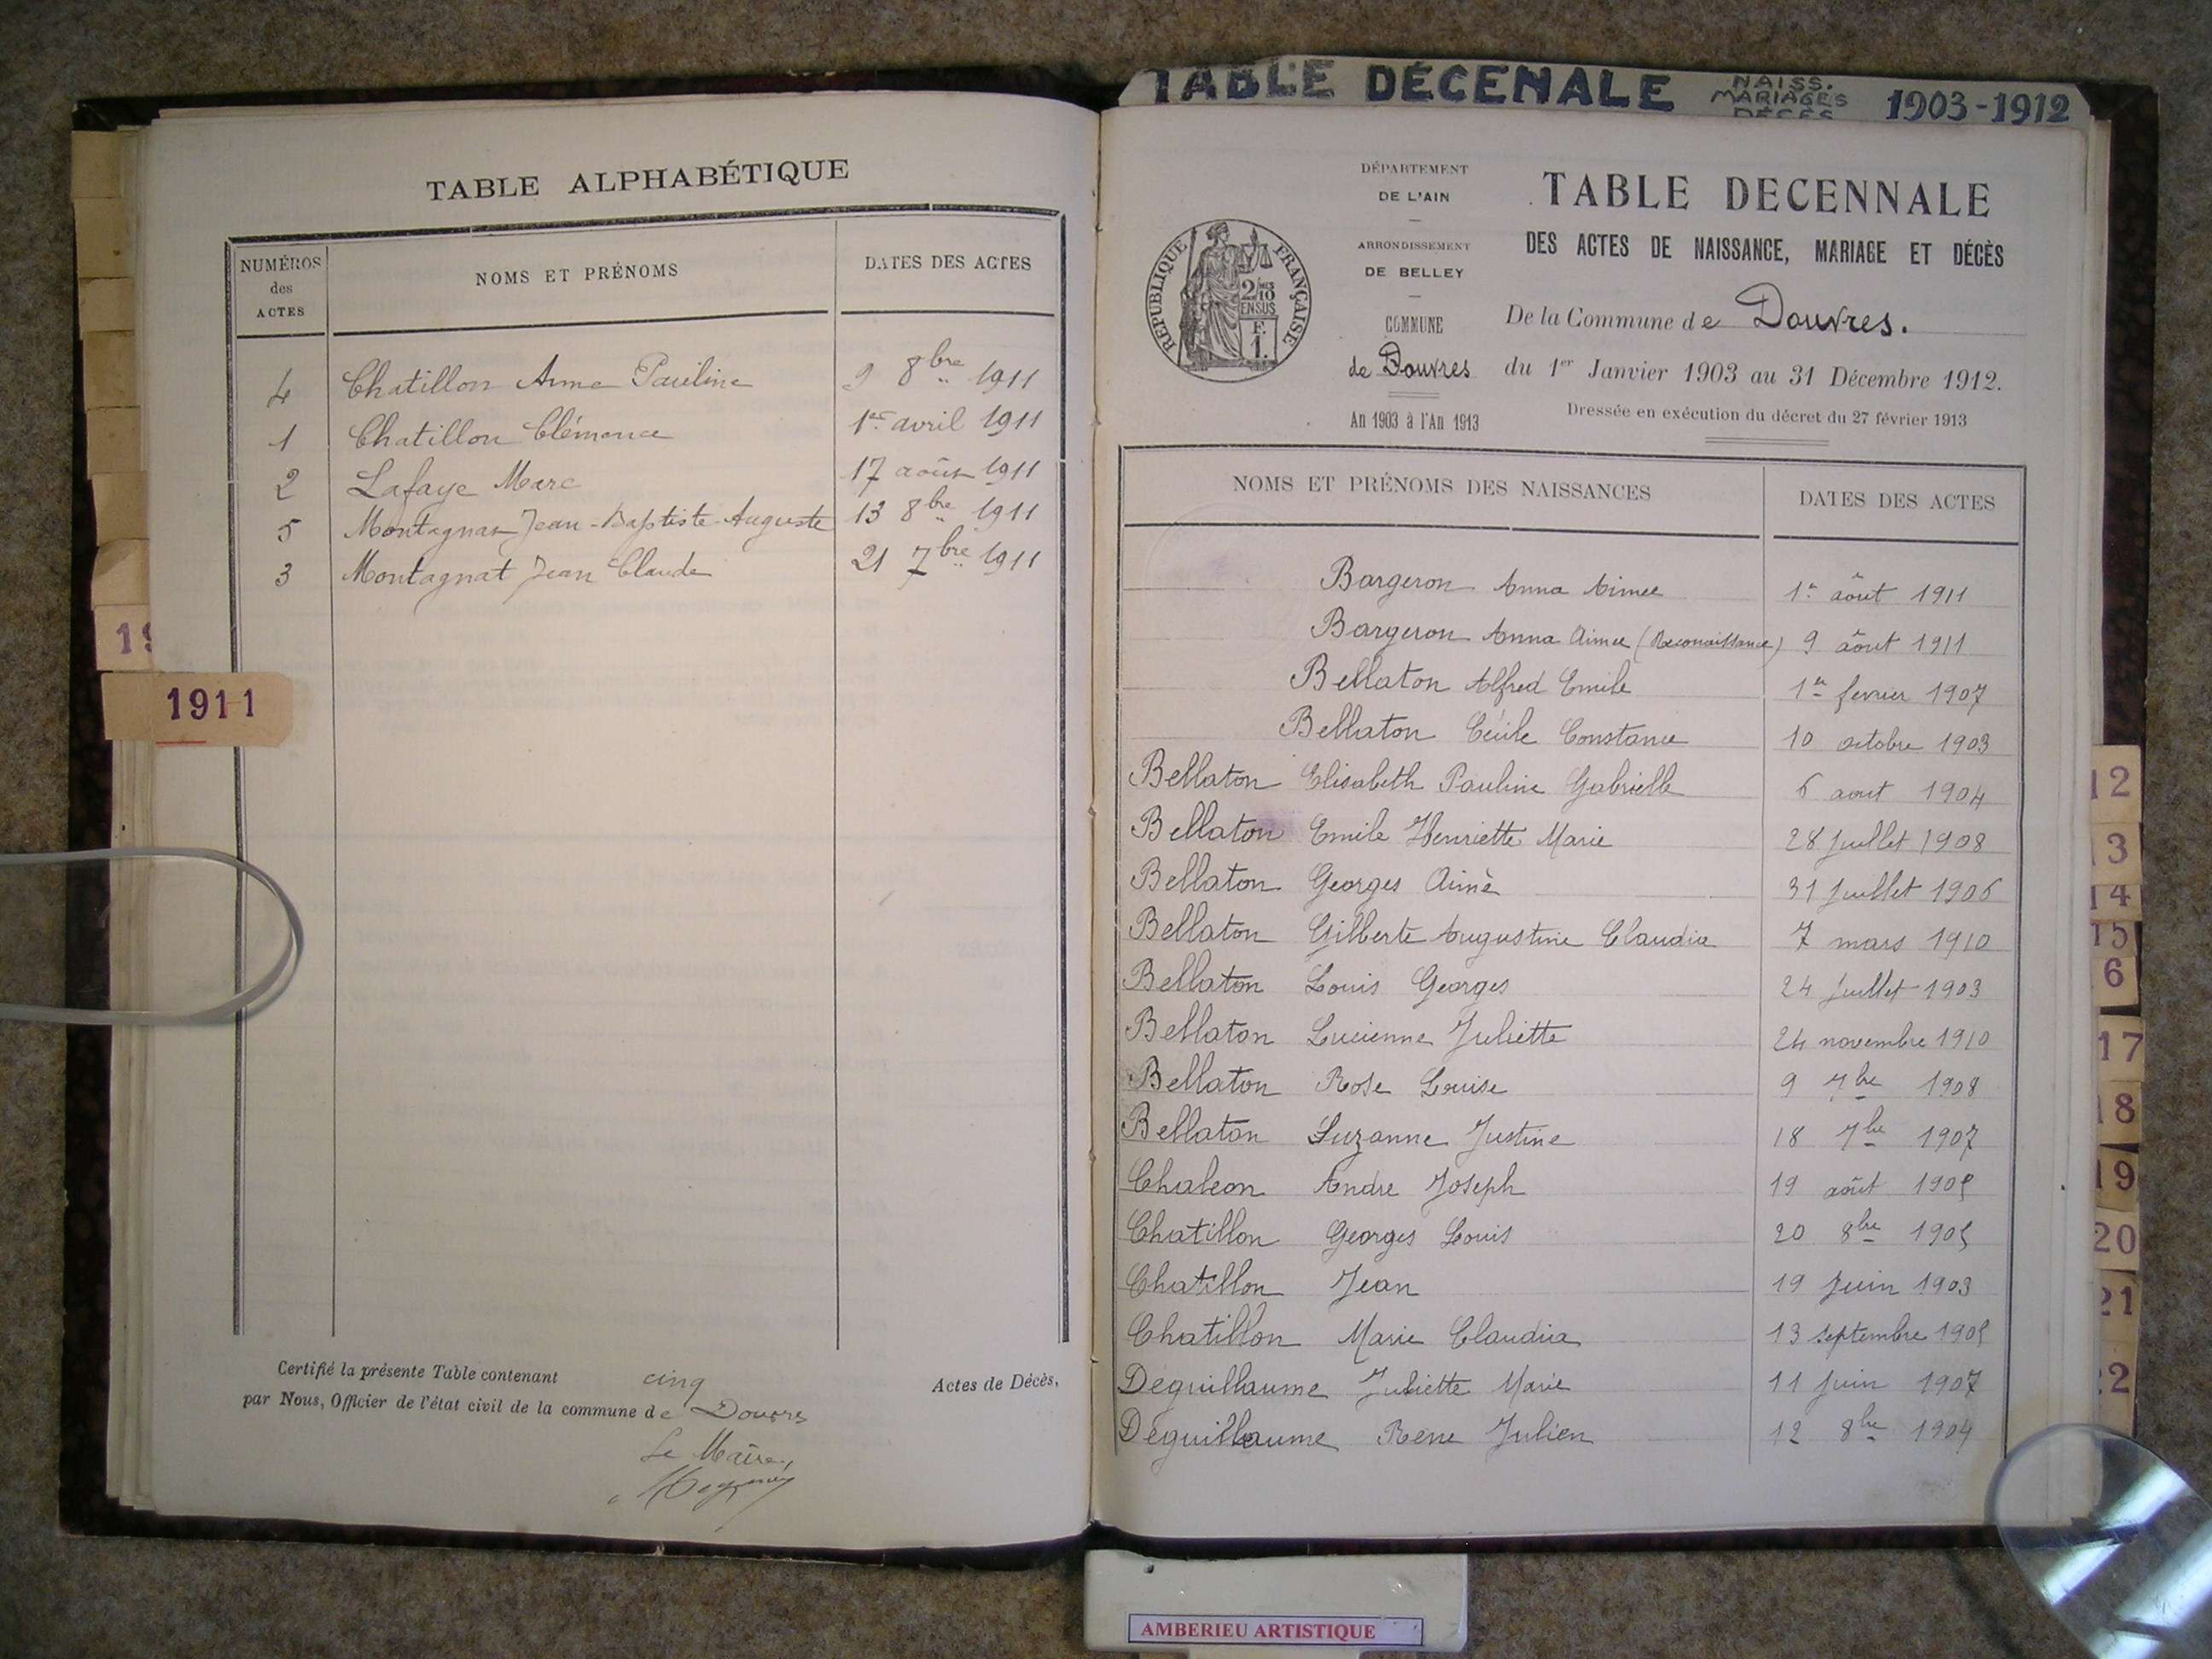 TABLE ALPHABÉTIQUE
NUMÉROS des ACTES
NOMS ET PRÉNOMS
DATES DES ACTES
4 Chatillon Anna Pauline 9 8bre 1911
1 Chatillon Clémence 1er avril 1911
2 Lafaye Marc 17 août 1911
5 Montagnat Jean-Baptiste-Auguste 13 8bre 1911
3 Montagnat Jean Claude 21 7bre 1911
19
1911
Certifié la présente Table contenant cinq Actes de Décès,
par Nous, Officier de l'état civil de la commune de Douvres
Le Maire,
TABLE DÉCENALE NAISS. MARIAGES DÉCÈS 1903-1912
DÉPARTEMENT
DE L'AIN
ARRONDISSEMENT
DE BELLEY
COMMUNE
de Douvres
An 1903 à l'An 1913
RÉPUBLIQUE FRANÇAISE
2/10
EN SUS
F.
1.
TABLE DECENNALE
DES ACTES DE NAISSANCE, MARIAGE ET DÉCÈS
De la Commune de Douvres.
du 1er Janvier 1903 au 31 Décembre 1912.
Dressée en exécution du décret du 27 février 1913
NOMS ET PRÉNOMS DES NAISSANCES
DATES DES ACTES
Bargeron Anna Aimee 1er âout 1911
Bargeron Anna Aimee (Reconaissance) 9 âout 1911
Bellaton Alfred Emile 1er fevrier 1907
Bellaton Cécile Constance 10 octobre 1903
Bellaton Elisabeth Pauline Gabrielle 6 aout 1904
Bellaton Emile Henriette Marie 28 Juillet 1908
Bellaton Georges Aimè 31 Juillet 1906
Bellaton Gilberte Augustine Claudia 7 mars 1910
Bellaton Louis Georges 24 Juillet 1903
Bellaton Lucienne Juliette 24 novembre 1910
Bellaton Rose Louise 9 7bre 1908
Bellaton Suzanne Justine 18 7bre 1907
Chaleon Andre Joseph 19 août
Chatillon Georges Louis 20 8bre 1905
Chatillon Jean 19 Juin 1903
Chatillon Marie Claudia 13 septembre
Deguillaume Juliette Marie 11 Juin 1907
Deguillaume Rene Julien 12 8bre 1904
12
13
14
15
6
17
18
19
20
21
22
AMBERIEU ARTISTIQUE